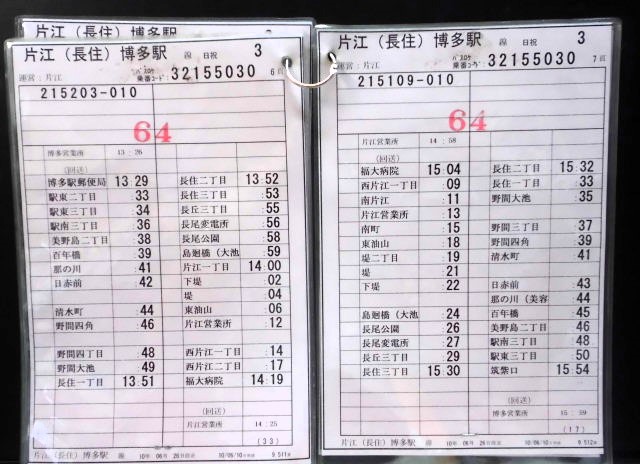 片江（長住）博多駅 線 日祝 3
運営：片江 ﾊﾞｽﾛｹ 乗番ｺｰﾄﾞ: 32155030 6頁
215203-010
64
博多営業所 13:26
(回送)
博多駅郵便局 13:29 長住二丁目 13:52
駅東二丁目 :33 長住三丁目 :53
駅東三丁目 :34 長丘三丁目 :55
駅南三丁目 :36 長尾変電所 :56
美野島二丁目 :38 長尾公園 :58
百年橋 :39 島廻橋（大池 :59
那の川 :41 片江一丁目 14:00
日赤前 :42 下堤 :02
堤 :04
清水町 :44 東油山 :06
野間四角 :46 片江営業所 :12
野間四丁目 :48 西片江一丁目 :14
野間大池 :49 西片江二丁目 :17
長住一丁目 13:51 福大病院 14:19
(回送)
片江営業所 14:25
(33)
片江（長住）博多駅 線 10年 06月 26日改正 10/06/10
片江（長住）博多駅 線 日祝 3
運営：片江 ﾊﾞｽﾛｹ 乗番ｺｰﾄﾞ: 32155030 7頁
215109-010
64
片江営業所 14:58
(回送)
福大病院 15:04 長住二丁目 15:32
西片江一丁目 :09 長住一丁目 :33
南片江 :11 野間大池 :35
片江営業所 :13
南町 :15 野間三丁目 :37
東油山 :18 野間四角 :39
堤二丁目 :19 清水町 :41
堤 :21
下堤 :22 日赤前 :43
那の川（美容 :44
島廻橋（大池 :24 百年橋 :45
長尾公園 :26 美野島二丁目 :46
長尾変電所 :27 駅南三丁目 :48
長丘三丁目 :29 駅東三丁目 :50
長住三丁目 15:30 筑紫口 15:54
(回送)
博多営業所 15:59
(17)
片江（長住）博多駅 線 10年 06月 26日改正 10/06/10